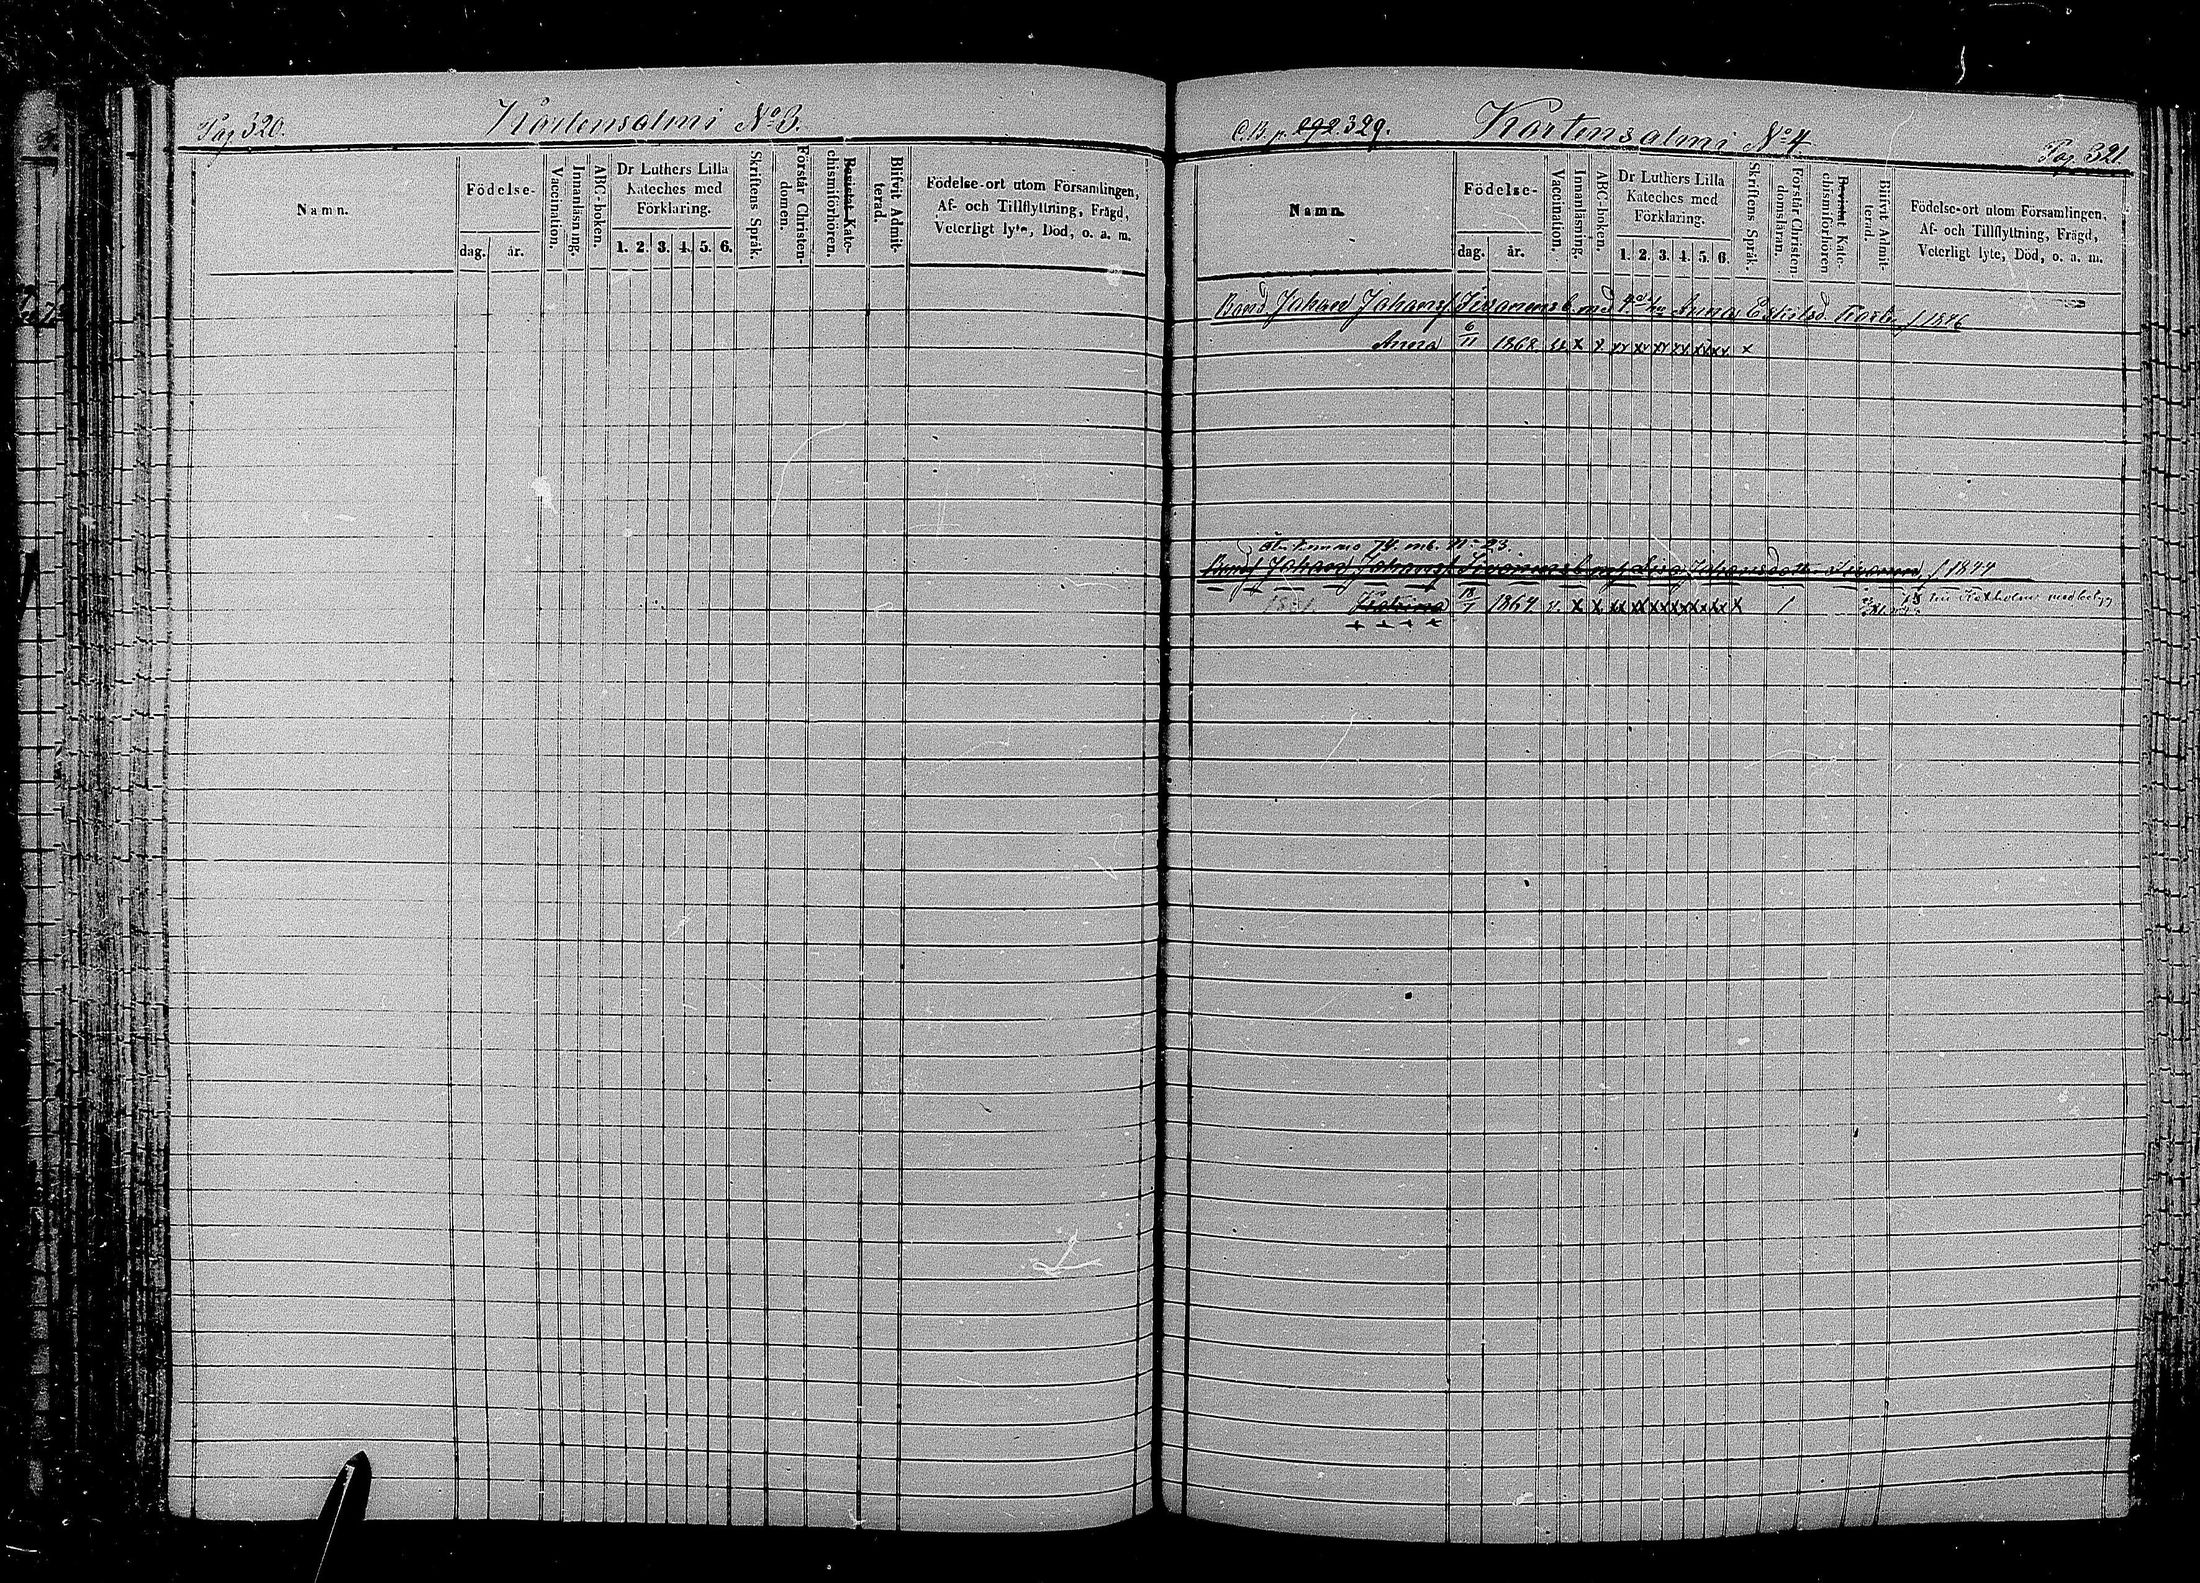 Pag 320.
Kortensalmi No 3.
Namn.
Födelse-
dag.
år.
Vaccination.
Innanläsning.
ABC-boken.
Dr Luthers Lilla
Kateches med
Förklaring.
1. 2. 3. 4. 5. 6.
Skriftens Språk.
Förstår Christen-
domen.
Bevistat Kate-
chismiförhören.
Blifvit Admit-
terad.
Födelse-ort utom Församlingen,
Af- och Tillflyttning, Frägd,
Veterligt lyte, Död, o. a. m.
C.B. p. 292 329.
Kortensalmi No 4
Pag. 321
Namn.
Födelse-
dag.
år.
Vaccination.
Innanläsning.
ABC-boken.
Dr Luthers Lilla
Kateches med
Förklaring.
1. 2. 3. 4. 5. 6.
Skriftens Språk.
Förstår Christen-
domsläran.
Bevistat Kate-
chismiförhören
Blifvit Admit-
terad.
Födelse-ort utom Församlingen,
Af- och Tillflyttning, Frägd,
Veterligt lyte, Död, o. a. m.
Bond. Johan Johansf. med Anna f 1846
Anna 6/11 1868. x x xx xx xx xx xx xx x
N:o 23.
Johan Johansf Lisa Johansdotter f 1844
Katrina 18/1 1864 v. x x xx xx xx xx xx xx x 1 till Kexholm med betyg